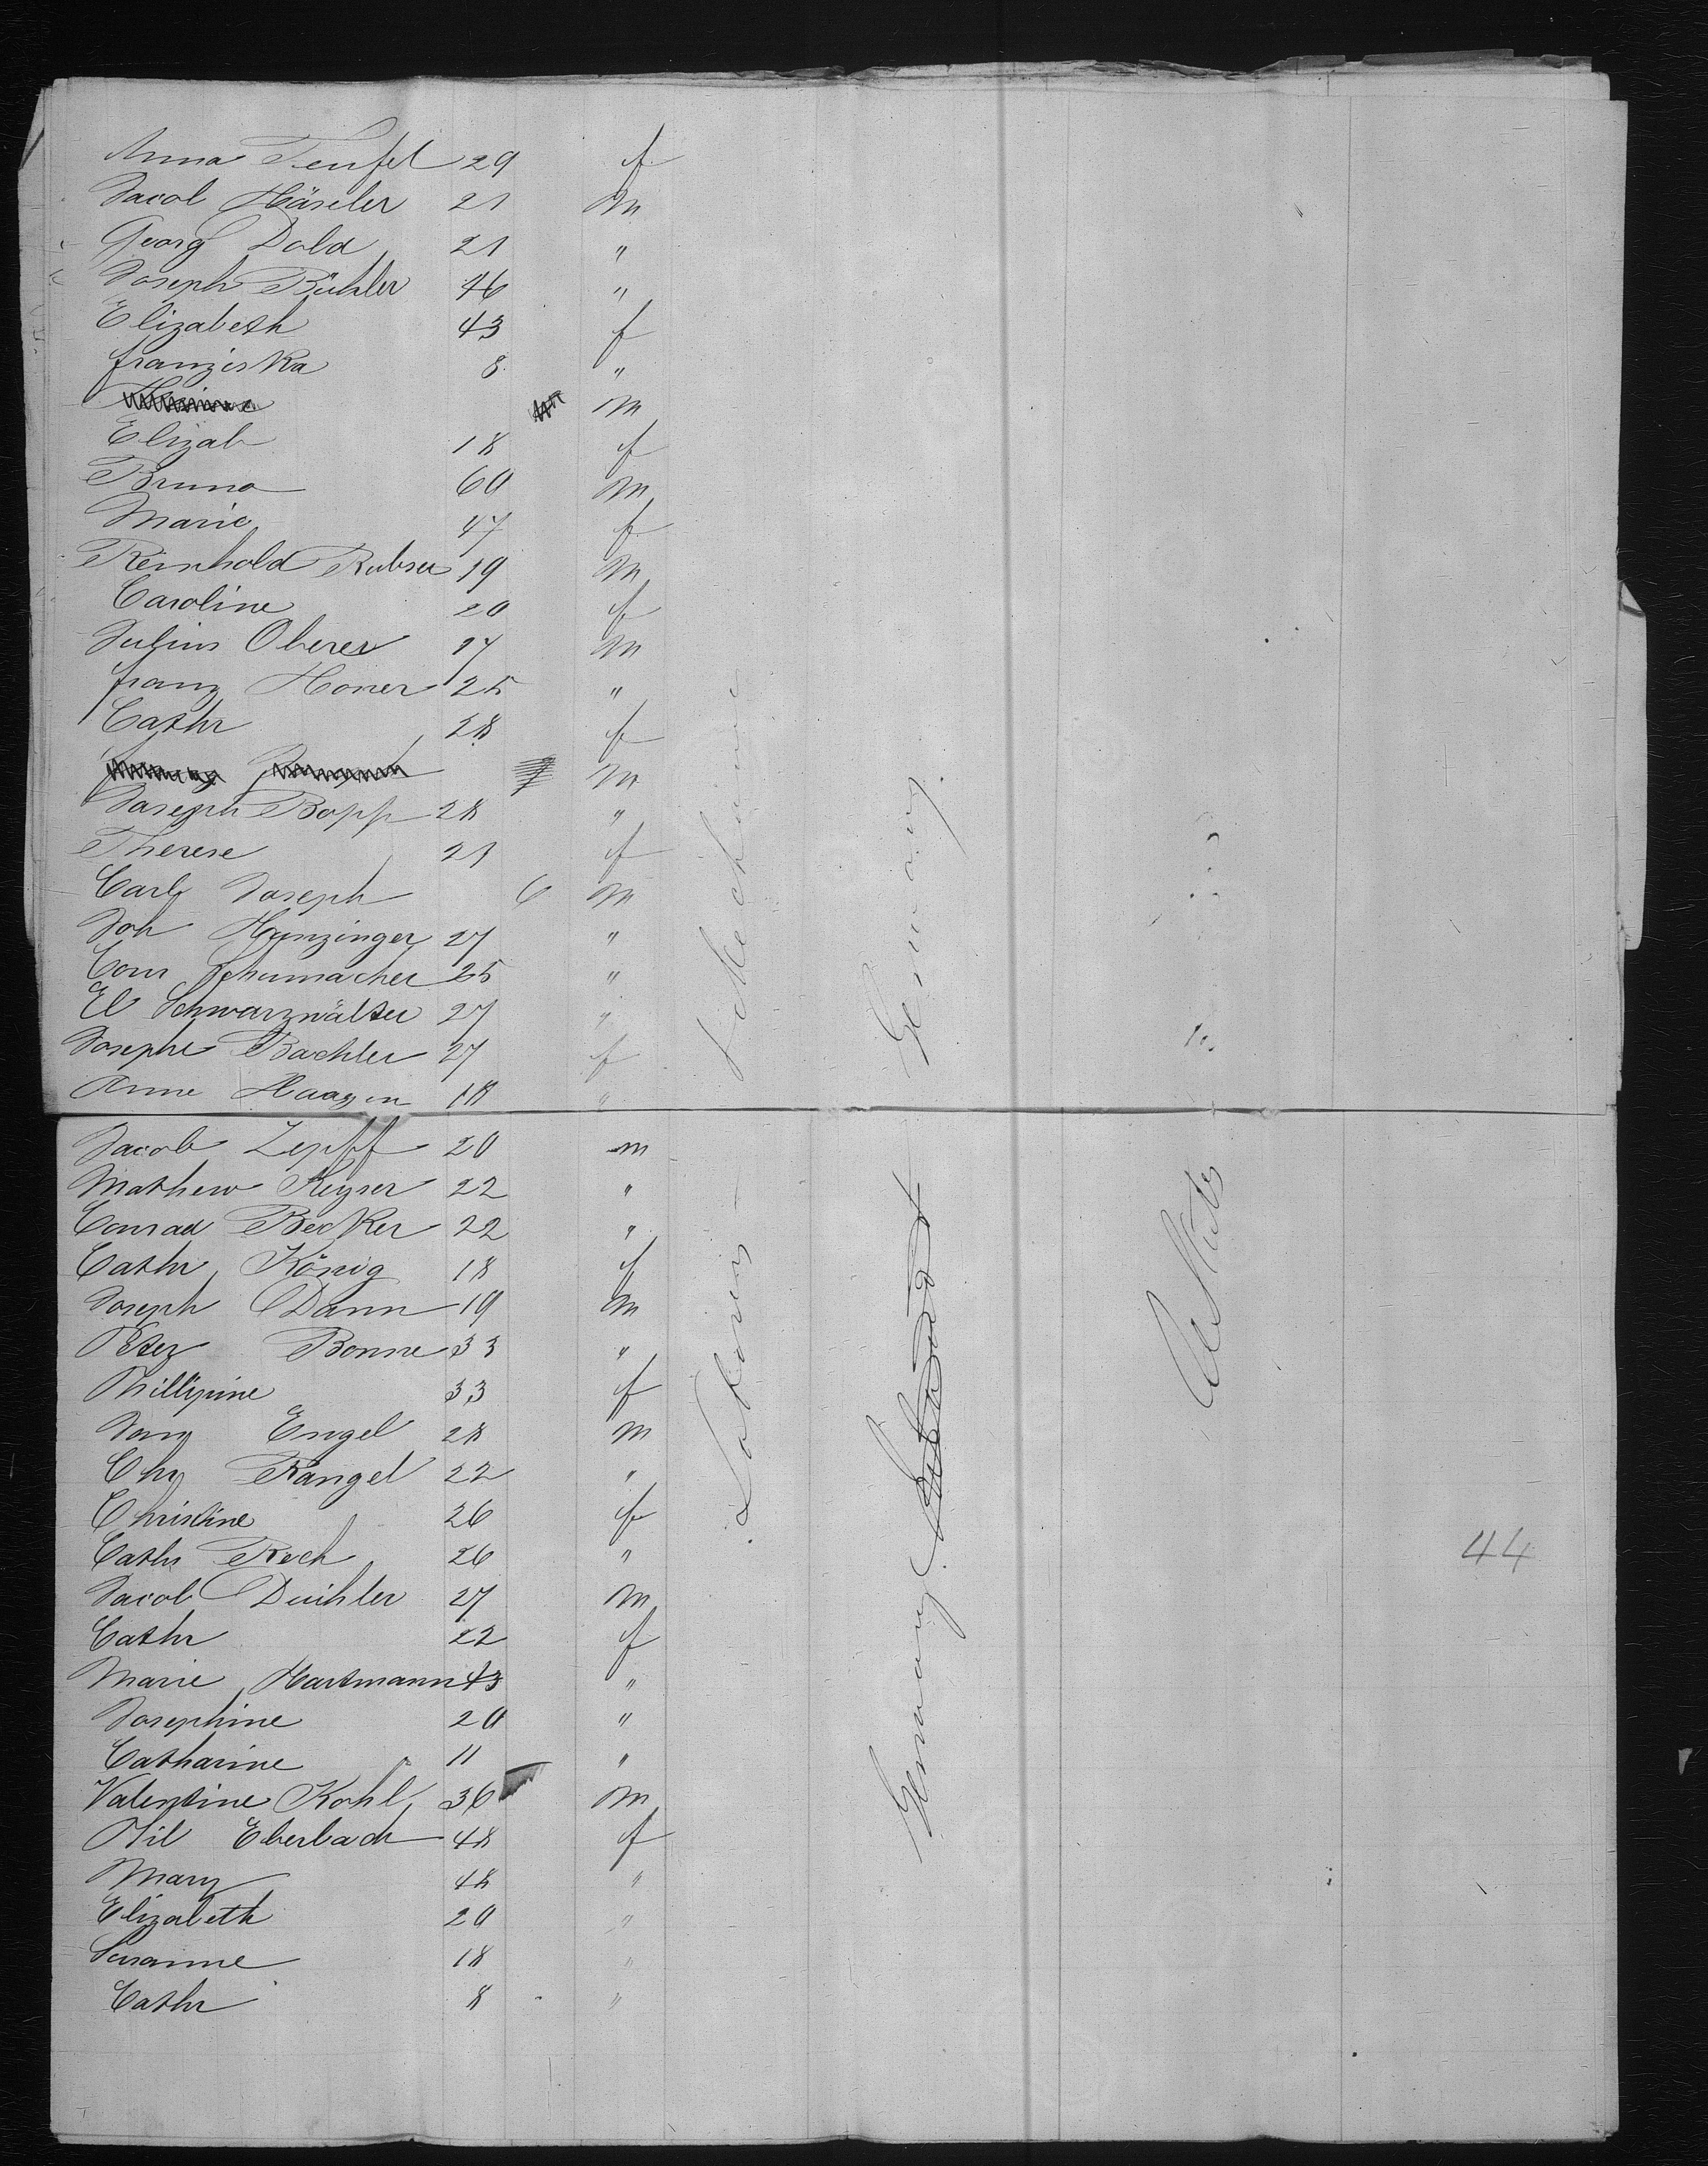 Anna Teufel 29 f
Jacob Häseler 21 m
Georg Dold 21 "
Joseph Bühler 46 "
Elizabeth 43 f
franziska 8 "
m
Elizab 18 f
Bruno 60 m
Marie 47 f
Reinhold Rubser 19 m
Caroline 20 f
Julius Oberer 17 m
franz Honer 25 "
Cathr 28 f
m
Joseph Bopp 28 "
Therese 21 f
Carl Joseph 6 m
Joh Hunzinger 27 "
Conr Schumacher 25 "
El Schwarzwälter 27 "
Josephe Bachler 27 f
Anne Haagen 18 "
Jacob Zepff 20 m
Mathew Keyser 22 "
Conrad Becker 22 "
Cathr König 18 f
Joseph Dann 19 m
Peter Bonne 33 "
Phillipine 33 f
Engel 28 m
Chr Rangel 22 "
Christine 26 f
Cathr Rech 26 "
Jacob Duihler 27 m
Cathr 22 f
Marie Hartmann 43 "
Josephine 20 "
Catharine 11 "
Valentine Kohl 36 m
Eberbach 48 f
Mary 45 "
Elizabeth 20 "
Susanne 18 "
Cathr 8 "
Germany
Germany
44